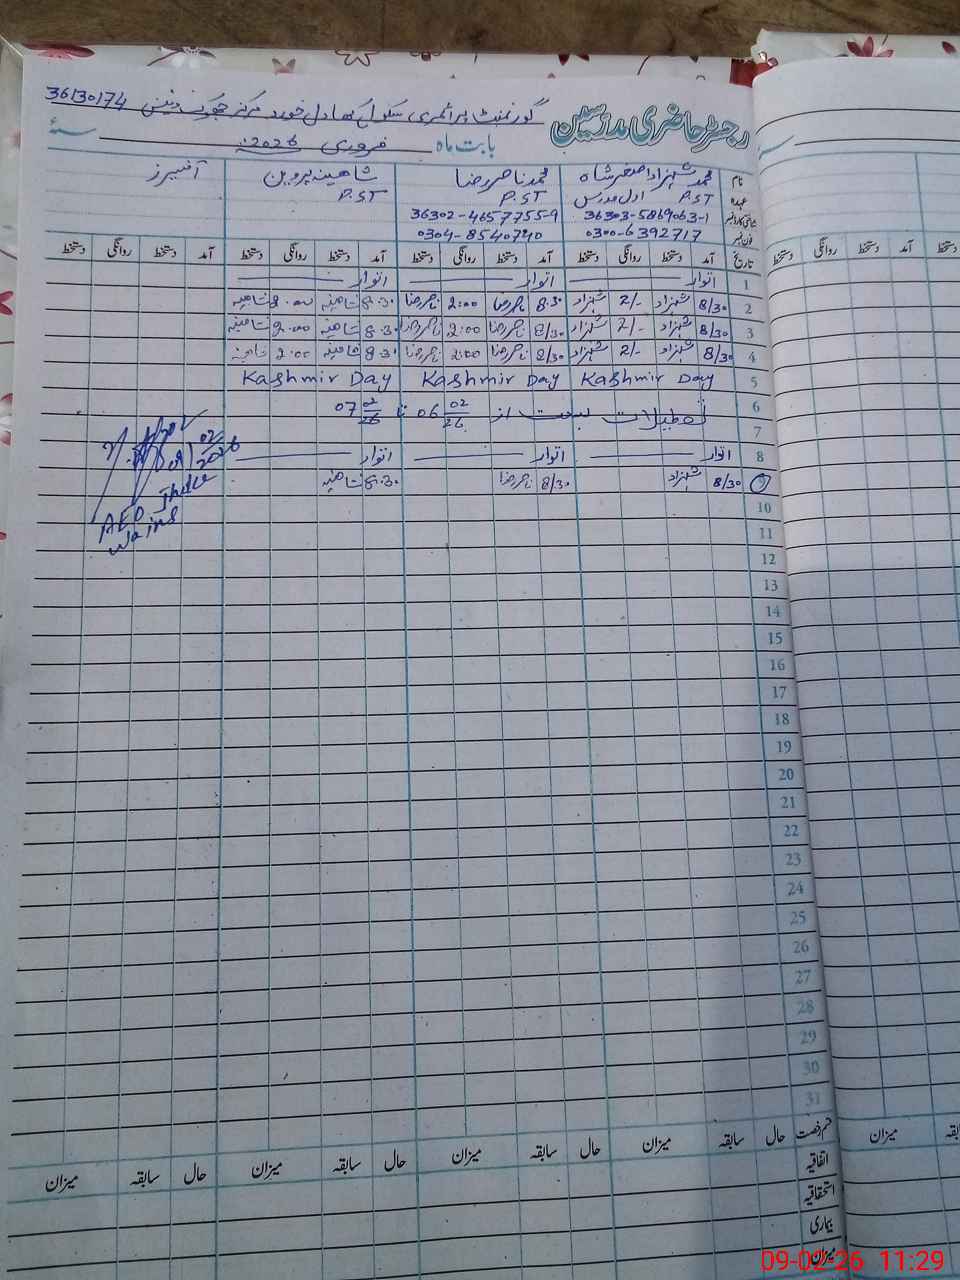 36130174 گورنمنٹ پرائمری سکول
رجسٹر حاضری مدرسین
بابت ماہ فروری 2026ء سنہ
نام محمد شہزاد اصغر شاہ محمد ناصر رضا شاہینہ پروین آفیسرز
عہدہ P.ST اول مدرس P.ST P.ST
36303-5869063-1 36302-4657755-9
فون نمبر 0300-6392717 0304-8540740
تاریخ آمد دستخط روانگی دستخط آمد دستخط روانگی دستخط آمد دستخط روانگی دستخط آمد دستخط روانگی دستخط
1 اتوار اتوار اتوار
2 8/30 شہزاد 2/- شہزاد 8.30 ناصر رضا 2:00 ناصر رضا 8.30 شاہینہ شاہینہ
3 8/30 شہزاد 2/- شہزاد 8/30 ناصر رضا 2:00 ناصر رضا 8.30 شاہینہ شاہینہ
4 8/30 شہزاد 2/- شہزاد 8/30 ناصر رضا 2:00 ناصر رضا 8.30 شاہینہ 2:00 شاہینہ
5 Kashmir Day Kashmir Day Kashmir Day
6 تعطیلات بسنت از 06 02/26 تا 07 02/26
7
8 اتوار اتوار اتوار
9 8/30 شہزاد 8/30 ناصر رضا 8.30 شاہینہ
09/02/2026
AEO
10
11
12
13
14
15
16
17
18
19
20
21
22
23
24
25
26
27
28
29
30
31
قسم رخصت حال سابقہ میزان حال سابقہ میزان حال سابقہ میزان حال سابقہ میزان
اتفاقیہ
استحقاقیہ
بیماری
میزان
09-02-26 11:29